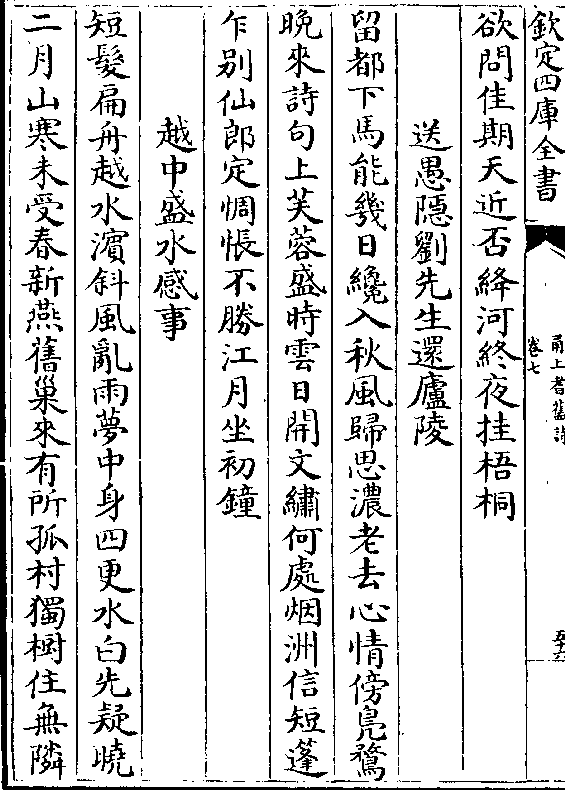 欽定四庫全書
甬上耆舊詩
卷七
欲問佳期天近否絳河終夜挂梧桐
送愚隱劉先生還廬陵
留都下馬能幾日纔入秋風歸思濃老去心情傍鳧鶩
晩來詩句上芙蓉盛時雲日開文繡何處烟洲信短蓬
乍别仙郎定惆悵不勝江月坐初鐘
越中盛水感事
短髮扁舟越水濵斜風亂雨夢中身四更水白先疑曉
二月山寒未受春新燕舊巢來有所孤村獨樹住無隣